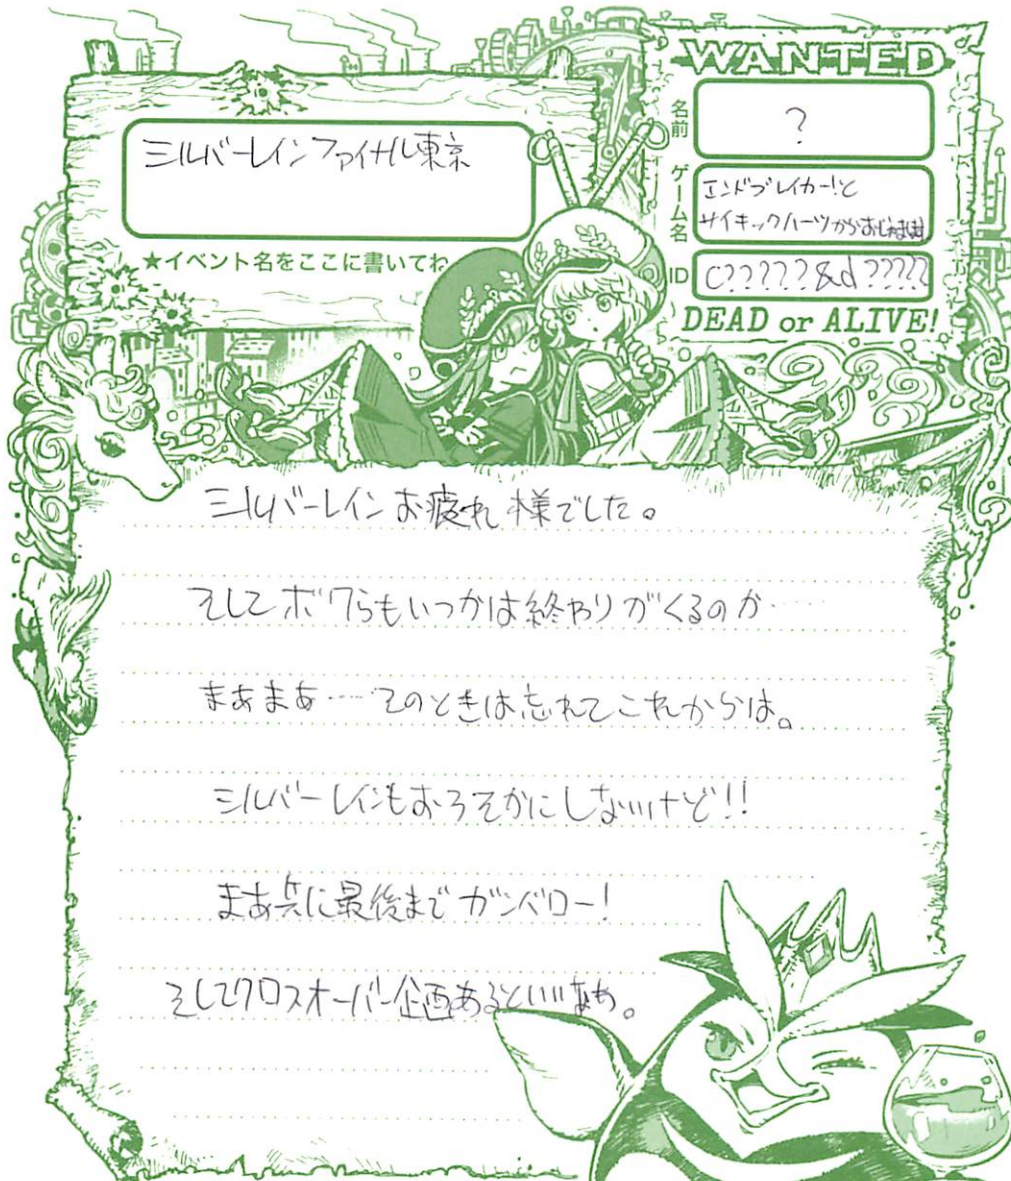 シルバーレインファイナル東京
★イベント名をここに書いてね
WANTED
名前
?
ゲーム名
エンドブレイカー!と
サイキックハーツからおじゃまします
ID
c?????&d?????
DEAD or ALIVE!
シルバーレインお疲れ様でした。
そしてボクらもいつかは終わりがくるのか……
まあまあ……そのときは忘れてこれからは。
シルバーレインもおろそかにしないけど!!
まあ共に最後までガンバロー!
そしてクロスオーバー企画あるといいなあ。